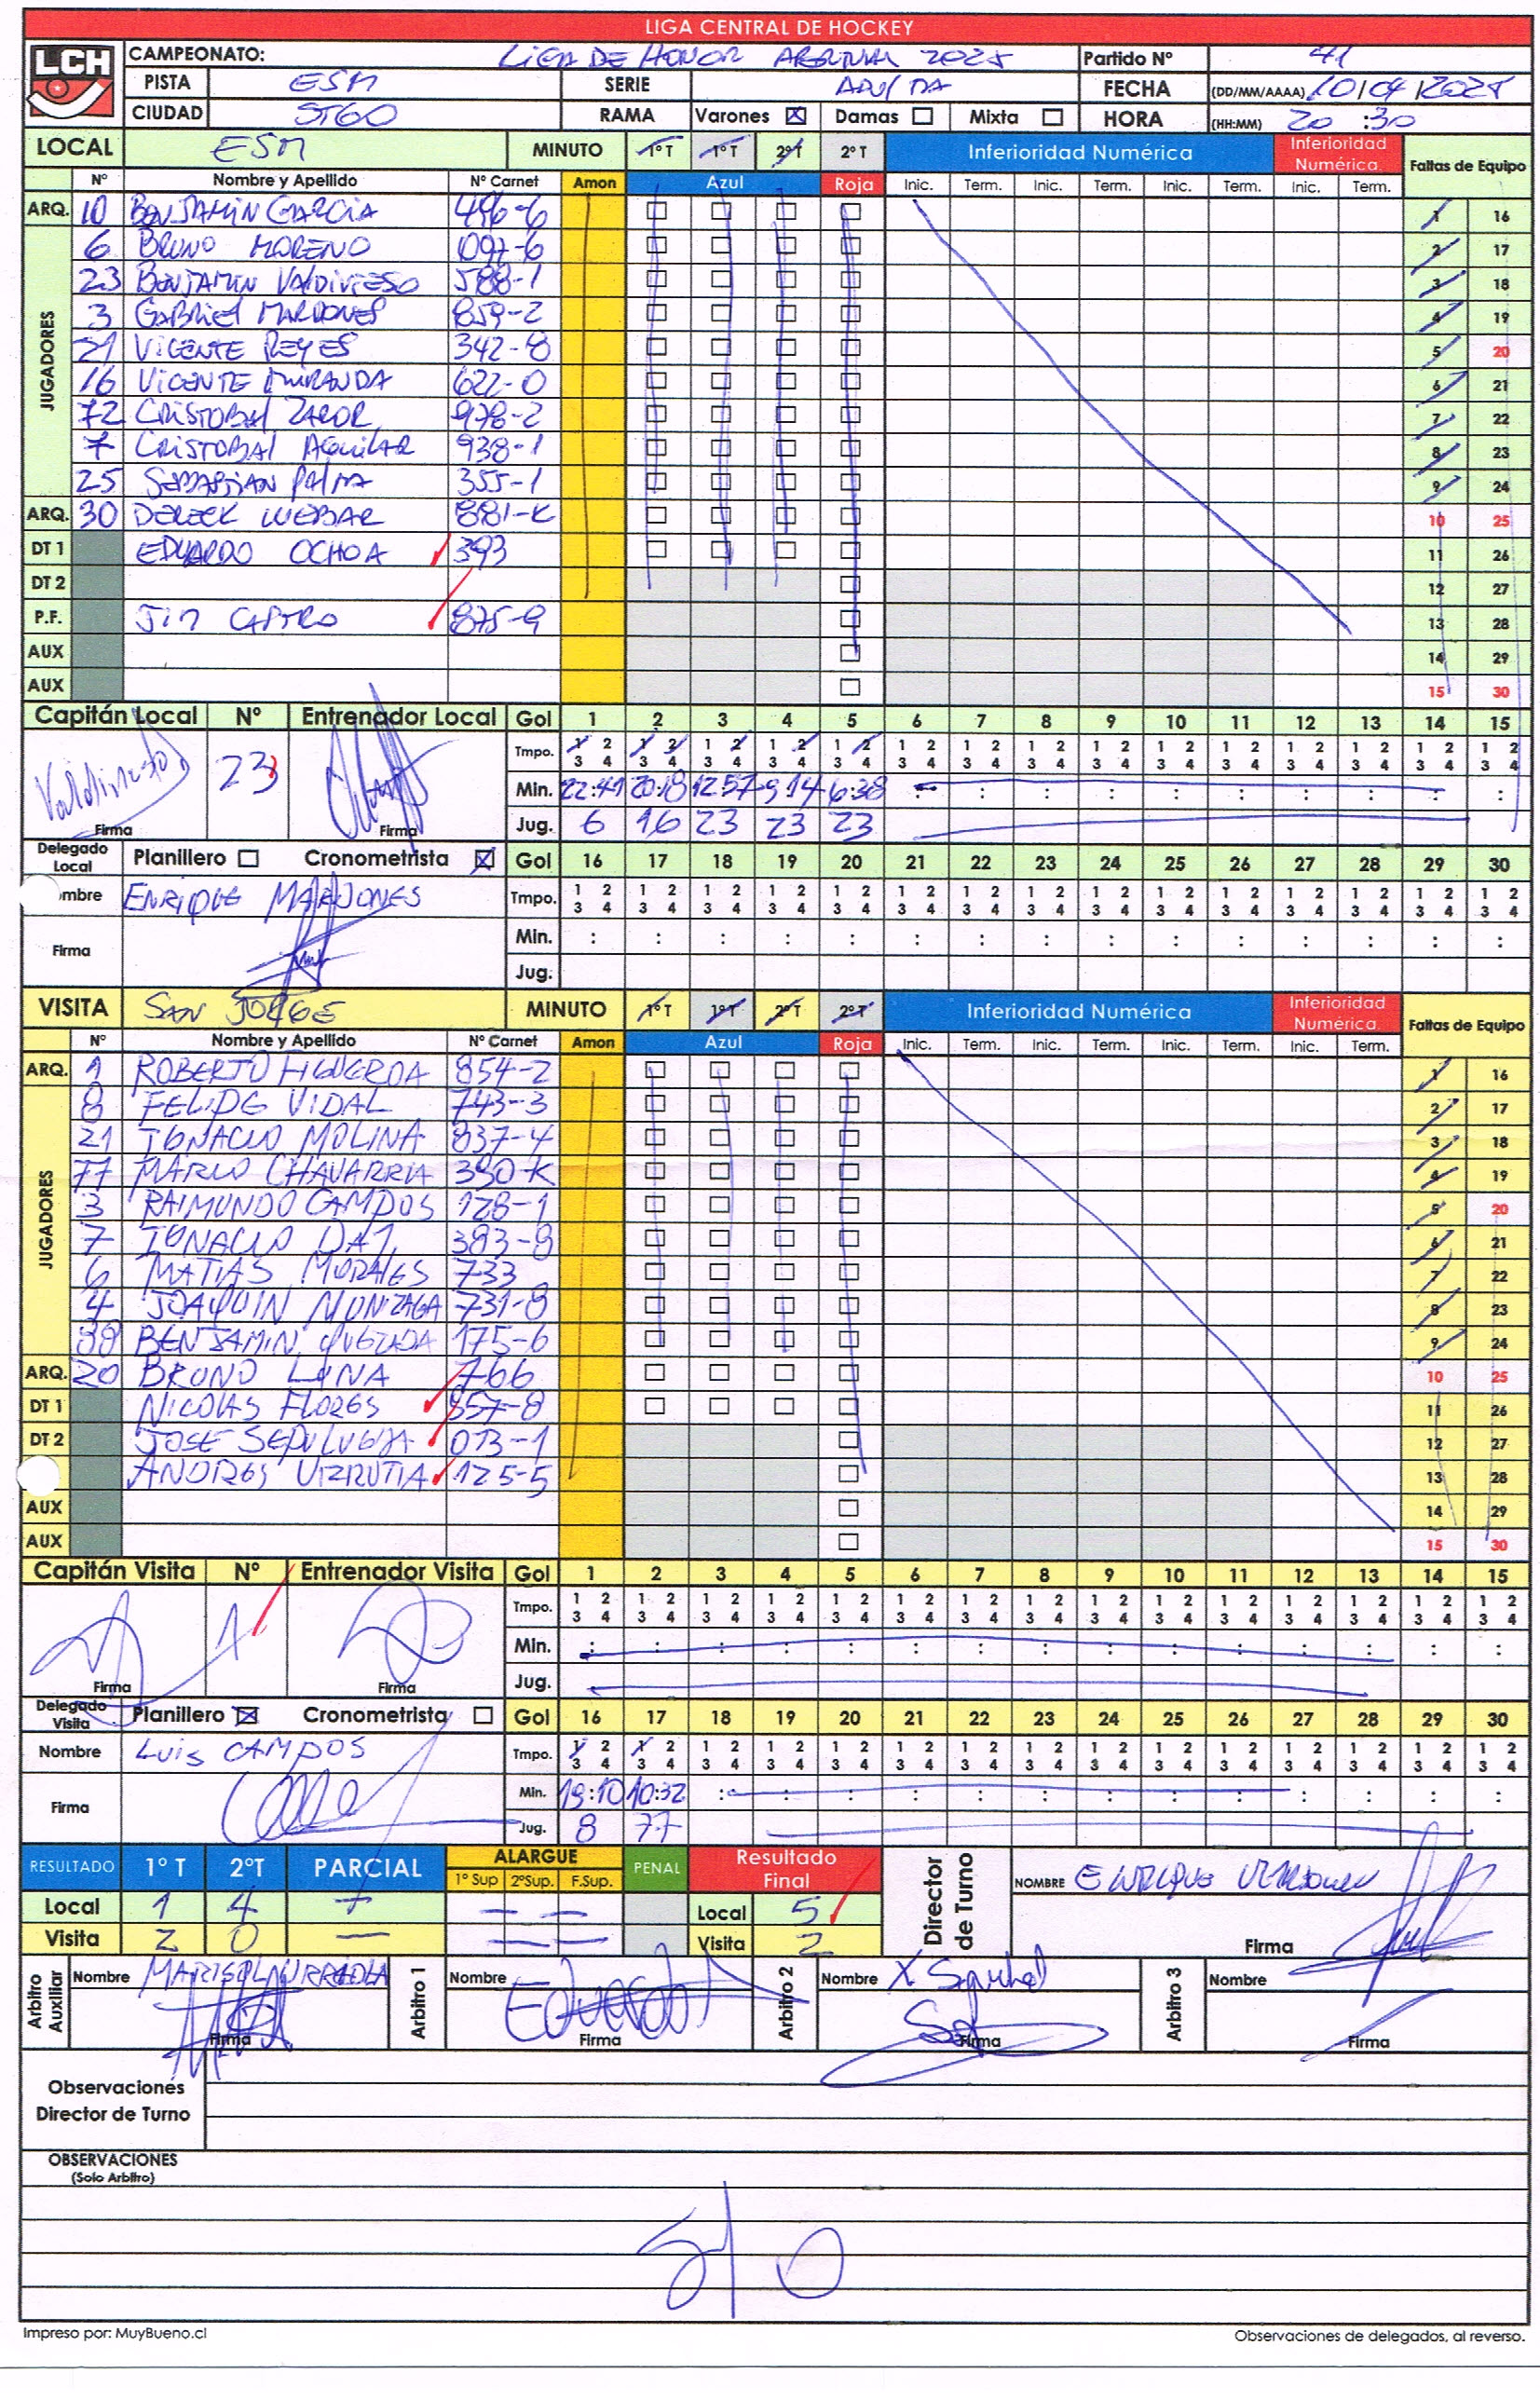 LIGA CENTRAL DE HOCKEY
LCH
CAMPEONATO: LIGA DE HONOR 2025 Partido Nº 41
PISTA ESM SERIE FECHA (DD/MM/AAAA) 10/04/2025
CIUDAD STGO RAMA Varones ☒ Damas ☐ Mixta ☐ HORA (HH:MM) 20:30
LOCAL ESM MINUTO 1º T 1º T 2º T 2º T Inferioridad Numérica Inferioridad Numérica Faltas de Equipo
Nº Nombre y Apellido Nº Carnet Amon Azul Roja Inic. Term. Inic. Term. Inic. Term. Inic. Term.
JUGADORES
ARQ. 10 BENJAMIN GARCIA 496-6 1 16
6 BRUNO MORENO 097-6 2 17
23 BENJAMIN VALDIVIESO 588-1 3 18
3 GABRIEL MARDONES 859-2 4 19
21 VICENTE REYES 342-8 5 20
16 VICENTE MIRANDA 622-0 6 21
72 CRISTOBAL ZAROR 978-2 7 22
7 CRISTOBAL AGUILAR 938-1 8 23
25 SEBASTIAN PALMA 355-1 9 24
ARQ. 30 DERECK WEBAR 881-K 10 25
DT 1 EDUARDO OCHOA 393 11 26
DT 2 12 27
P.F. JIM CASTRO 875-9 13 28
AUX 14 29
AUX 15 30
Capitán Local Nº Entrenador Local Gol 1 2 3 4 5 6 7 8 9 10 11 12 13 14 15
Tmpo. 1 2 3 4 1 2 3 4 1 2 3 4 1 2 3 4 1 2 3 4 1 2 3 4 1 2 3 4 1 2 3 4 1 2 3 4 1 2 3 4 1 2 3 4 1 2 3 4 1 2 3 4 1 2 3 4 1 2 3 4
Valdivieso 23 Min. 22:41 20:18 12:57 9:14 6:38
Firma Firma Jug. 6 16 23 23 23
Delegado Local Planillero ☐ Cronometrista ☒ Gol 16 17 18 19 20 21 22 23 24 25 26 27 28 29 30
Nombre ENRIQUE MARDONES Tmpo. 1 2 3 4 1 2 3 4 1 2 3 4 1 2 3 4 1 2 3 4 1 2 3 4 1 2 3 4 1 2 3 4 1 2 3 4 1 2 3 4 1 2 3 4 1 2 3 4 1 2 3 4 1 2 3 4 1 2 3 4
Firma Min. : : : : : : : : : : : : : : :
Jug.
VISITA SAN JORGE MINUTO 1º T 1º T 2º T 2º T Inferioridad Numérica Inferioridad Numérica Faltas de Equipo
Nº Nombre y Apellido Nº Carnet Amon Azul Roja Inic. Term. Inic. Term. Inic. Term. Inic. Term.
JUGADORES
ARQ. 1 ROBERTO FIGUEROA 854-2 1 16
8 FELIPE VIDAL 743-3 2 17
21 IGNACIO MOLINA 837-4 3 18
77 MARIO CHAVARRIA 390-K 4 19
3 RAIMUNDO CAMPOS 128-1 5 20
7 IGNACIO 383-8 6 21
6 MATIAS MORALES 733 7 22
4 JOAQUIN MUNIZAGA 731-8 8 23
88 BENJAMIN QUEZADA 175-6 9 24
ARQ. 20 BRUNO LUNA 766 10 25
DT 1 NICOLAS FLORES 857-8 11 26
DT 2 JOSE SEPULVEDA 013-1 12 27
ANDRES URRUTIA 125-5 13 28
AUX 14 29
AUX 15 30
Capitán Visita Nº Entrenador Visita Gol 1 2 3 4 5 6 7 8 9 10 11 12 13 14 15
Tmpo. 1 2 3 4 1 2 3 4 1 2 3 4 1 2 3 4 1 2 3 4 1 2 3 4 1 2 3 4 1 2 3 4 1 2 3 4 1 2 3 4 1 2 3 4 1 2 3 4 1 2 3 4 1 2 3 4 1 2 3 4
1 Min. : : : : : : : : : : : : : : :
Firma Firma Jug.
Delegado Visita Planillero ☒ Cronometrista ☐ Gol 16 17 18 19 20 21 22 23 24 25 26 27 28 29 30
Nombre LUIS CAMPOS Tmpo. 1 2 3 4 1 2 3 4 1 2 3 4 1 2 3 4 1 2 3 4 1 2 3 4 1 2 3 4 1 2 3 4 1 2 3 4 1 2 3 4 1 2 3 4 1 2 3 4 1 2 3 4 1 2 3 4 1 2 3 4
Firma Min. 19:10 10:32
Jug. 8 77
RESULTADO 1º T 2ºT PARCIAL ALARGUE 1º Sup 2ºSup. F.Sup. PENAL Resultado Final Director de Turno NOMBRE ENRIQUE MARDONES
Local 1 4 Local 5
Visita 2 0 — Visita 2 Firma
Arbitro Auxiliar Nombre MARISOL URREOLA Arbitro 1 Nombre Eduardo Arbitro 2 Nombre Arbitro 3 Nombre
Firma Firma Firma Firma
Observaciones Director de Turno
OBSERVACIONES
(Solo Arbitro)
S/O
Impreso por: MuyBueno.cl Observaciones de delegados, al reverso.